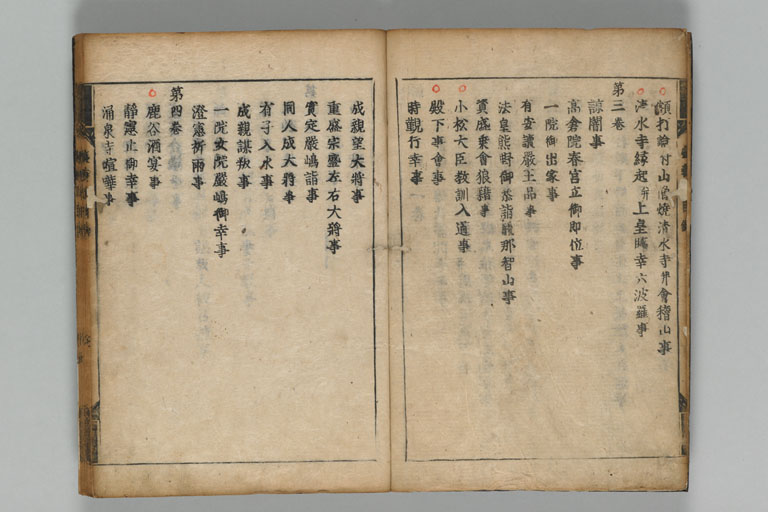 額打論付山僧燒清水寺并會稽山事
清水寺縁起并上皇臨幸六波羅事
第三巻
諒闇事
高倉院春宮立御即位事
一院御出家事
有安讀嚴王品事
法皇熊野御參詣那智山事
資盛乗會狼藉事
小松大臣教訓入道事
殿下事會事
時觀行幸事
成親望大將事
重盛宗盛左右大將事
實定嚴嶋詣事
同人成大將事
有子入水事
成親謀叛事
一院女院嚴嶋御幸事
澄憲祈雨事
第四巻
鹿谷酒宴事
靜憲止御幸事
涌泉寺喧嘩事